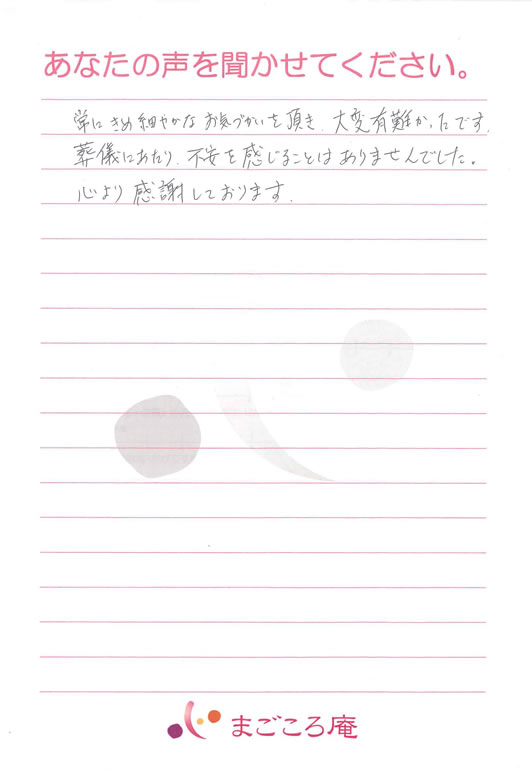 あなたの声を聞かせてください。
常にきめ細やかなお気づかいを頂き、大変有難かったです。
葬儀にあたり、不安を感じることはありませんでした。
心より感謝しております。
まごころ庵